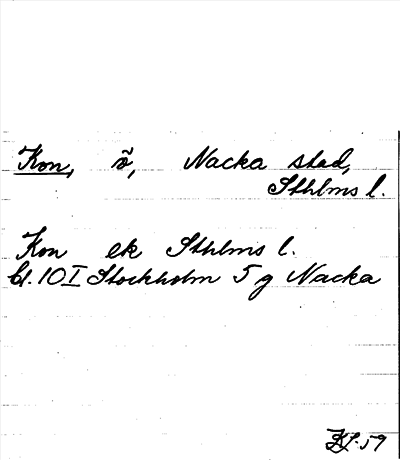 Kon, ö, Nacka stad,
Sthlms l.
Kon ek Sthlms l.
bl. 10 I Stockholm 5 g Nacka